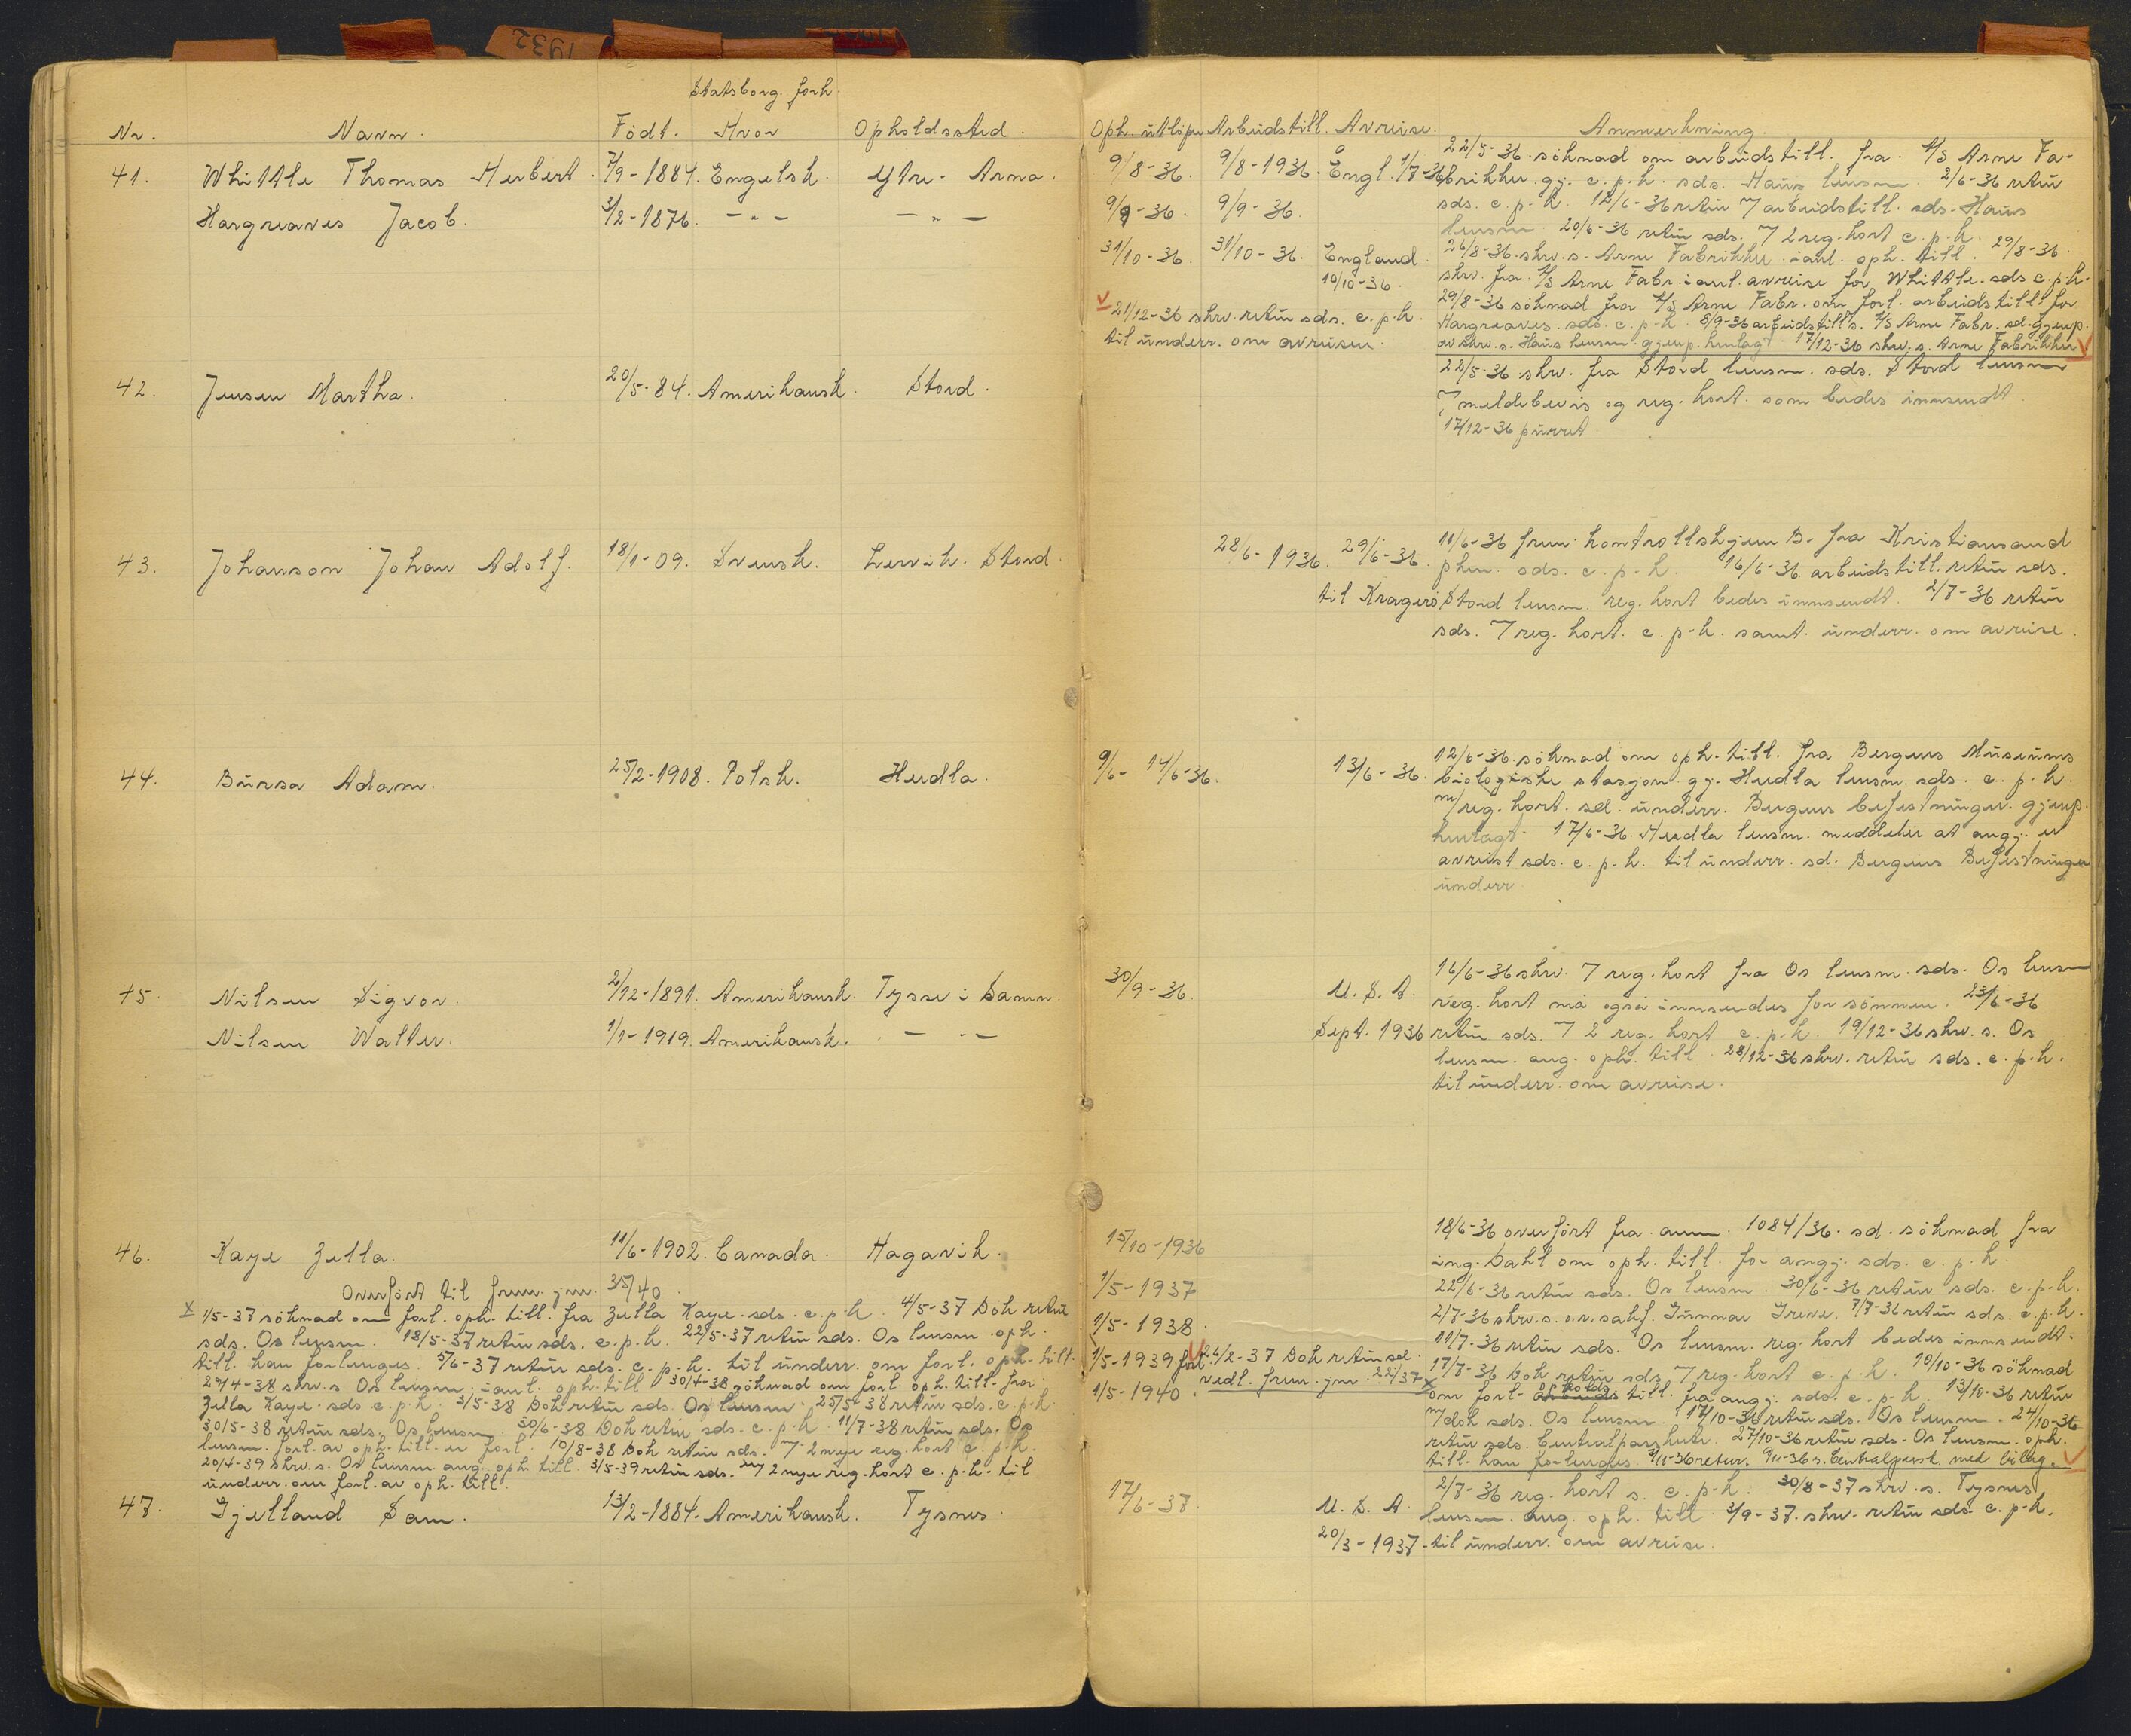 1932
Statsborg. forh.
Nr. Navn. Født. Hvor Opholdssted.
41. Whittle Thomas Herbert. 7/9-1884. Engelsk. Ytre-Arna.
Hargreaves Jacob. 3/2-1876. -"- -"-
42. Jensen Martha. 20/5-84. Amerikansk. Stord.
43. Johanson Johan Adolf. 18/1-09. Svensk. Lervik. Stord.
44. Bursa Adam. 25/2-1908. Polsk. Herdla.
45. Nilsen Sigvor. 2/12-1891. Amerikansk. Tysse i Samn.
Nilsen Walter. 1/1-1919. Amerikansk. -"-
46. Kaye Zella. 11/6-1902. Canada. Hagavik.
Overført til frem. jnr. 35/40
x 1/5-37 søknad om forl. oph. till. fra Zella Kaye. sds. c.p.k. 4/5-37 Dok retur
sds. Os lensm. 18/5-37 retur sds. c.p.k. 22/5-37 retur sds. Os lensm. oph.
till. kan forlenges. 5/6-37 retur sds. c.p.k. til underr. om forl. oph. till.
29/4-38 skrv. s Os lensm. ianl. oph. till. 30/4-38 søknad om forl. oph. till. fra
Zella Kaye. sds c.p.k. 3/5-38 Dok retur sds. Os lensm. 25/5-38 retur sds. c.p.k.
30/5-38 retur sds. Os lensm. 30/6-38 Dok retur sds. c.p.k. 11/7-38 retur sds. Os
lensm. forl. av oph. till. er forl. 10/8-38 Dok retur sds. 7 2 nye reg. kort c.p.k.
20/4-39 skrv. s. Os lensm ang. oph. till. 3/5-39 retur sds. m/ 2 nye reg. kort c.p.k. til
underr. om forl. av oph. till.
47. Gjelland Sam. 13/2-1884. Amerikansk. Tysnes.
Oph. utløpe Arbeidstill. Avreise. Anmerkning.
9/8-36. 9/8-1936. Engl. 1/7-36
9/9-36. 9/9-36.
31/10-36. 31/10-36. England.
10/10-36.
21/12-36 skrv. retur sds. c.p.k.
til underr. om avreisen.
22/5-36 søknad om arbeidstill. fra A/S Arne Fa-
brikker. gj. c.p.k. sds. Haus lensm. 2/6-36 retur
sds. c.p.k. 12/6-36 retur 7 arbeidstill. sds. Haus
lensm. 20/6-36 retur sds. 7 2 reg. kort c.p.k. 29/8-36
26/8-36. skrv. s. Arne Fabrikker ianl. oph. till.
skrv. fra A/S Arne Fabr. ianl. avreise for Whittle. sds c.p.k.
29/8-36 søknad fra A/S Arne Fabr. om forl. arbeidstill. for
Hargreaves. sds. c.p.k. 8/9-36 arbeidstill s. A/S Arne Fabr. sd. gjenp.
av skrv. s. Haus lensm. gjenp. henlagt. 17/12-36 skrv. s. Arne Fabrikker
22/5-36 skrv. fra Stord lensm. sds. Stord lensm
7 meldebevis og reg. kort. som bedes innsendt.
17/12-36 purret.
28/6-1936. 29/6-36.
til Kragerø
11/6-36 frem. kontrollskjem B. fra Kristiansand
pkm. sds. c.p.k. 16/6-36 arbeidstill. retur sds.
Stord lensm. reg. kort bedes innsendt. 2/7-36 retur
sds. 7 reg. kort. c.p.k. samt. underr. om avreise.
9/6- 14/6-36. 13/6-36.
12/6-36. søknad om oph. till. fra Bergens Museums
biologiske stasjon. gj. Herdla lensm. sds. c.p.k.
m/ reg. kort. sd. underr. Bergens befestninger. gjenp.
henlagt. 17/6-36. Herdla lensm. meddeler at angj. er
avreist sds. c.p.k. til underr. sd. Bergens Befestninger
underr.
30/9-36. U.S.A.
Sept. 1936
16/6-36 skrv. 7 reg. kort fra Os lensm. sds. Os lensm
reg. kort må også innsendes for sønnen. 23/6-36
retur sds. 7 2 reg. kort c.p.k. 19/12-36 skrv. s. Os
lensm. ang. oph. till. 28/12-36 skrv. retur sds. c.p.k.
til underr. om avreise.
15/10-1936
1/5-1937
1/5-1938.
1/5-1939. forl. 26/2-37 Dok retur sd.
vedl. frem. jnr. 22/37 x
1/5-1940.
18/6-36 overført fra ann. 1084/36. sd. søknad fra
ing. Dahl om oph. till. for angj. sds. c.p.k.
22/6-36 retur sds. Os lensm. 30/6-36 retur sds. c.p.k.
2/7-36 skrv. s. o.r. sakf. Gunnar Greve. 7/7-36 retur sds. c.p.k.
11/7-36 retur sds. Os lensm. reg. kort bedes innsendt.
17/7-36 Dok retur sds. 7 reg. kort c.p.k. 10/10-36 søknad
om forl. opholds till. fra angj. sds. c.p.k. 13/10-36 retur
m/ dok sds. Os lensm. 17/10-36 retur sds. Os lensm. 24/10-36
retur sds. Centralpasskntr. 27/10-36 retur sds. Os lensm. oph.
till. kan forlenges. 9/11-36 retur. 9/11-36 s. Centralpassk. med bilag.
17/6-37. U.S.A.
20/3-1937
2/7-36 reg. kort s. c.p.k. 30/8-37 skrv. s. Tysnes
lensm. ang. oph. till. 3/9-37. skrv. retur sds. c.p.k.
til underr. om avreise.